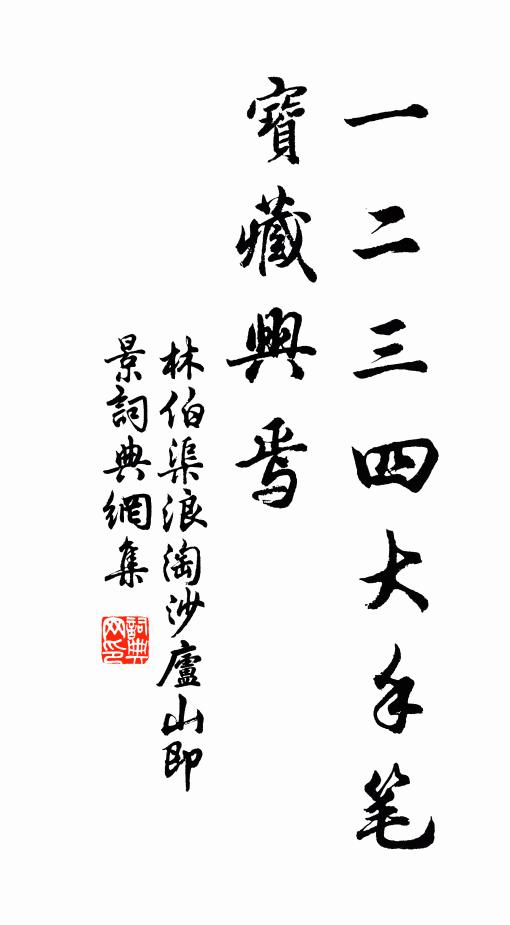 一二三四大手笔
寶藏興焉
林伯渠浪淘沙廬山即
景詞典網集
詞典
网印